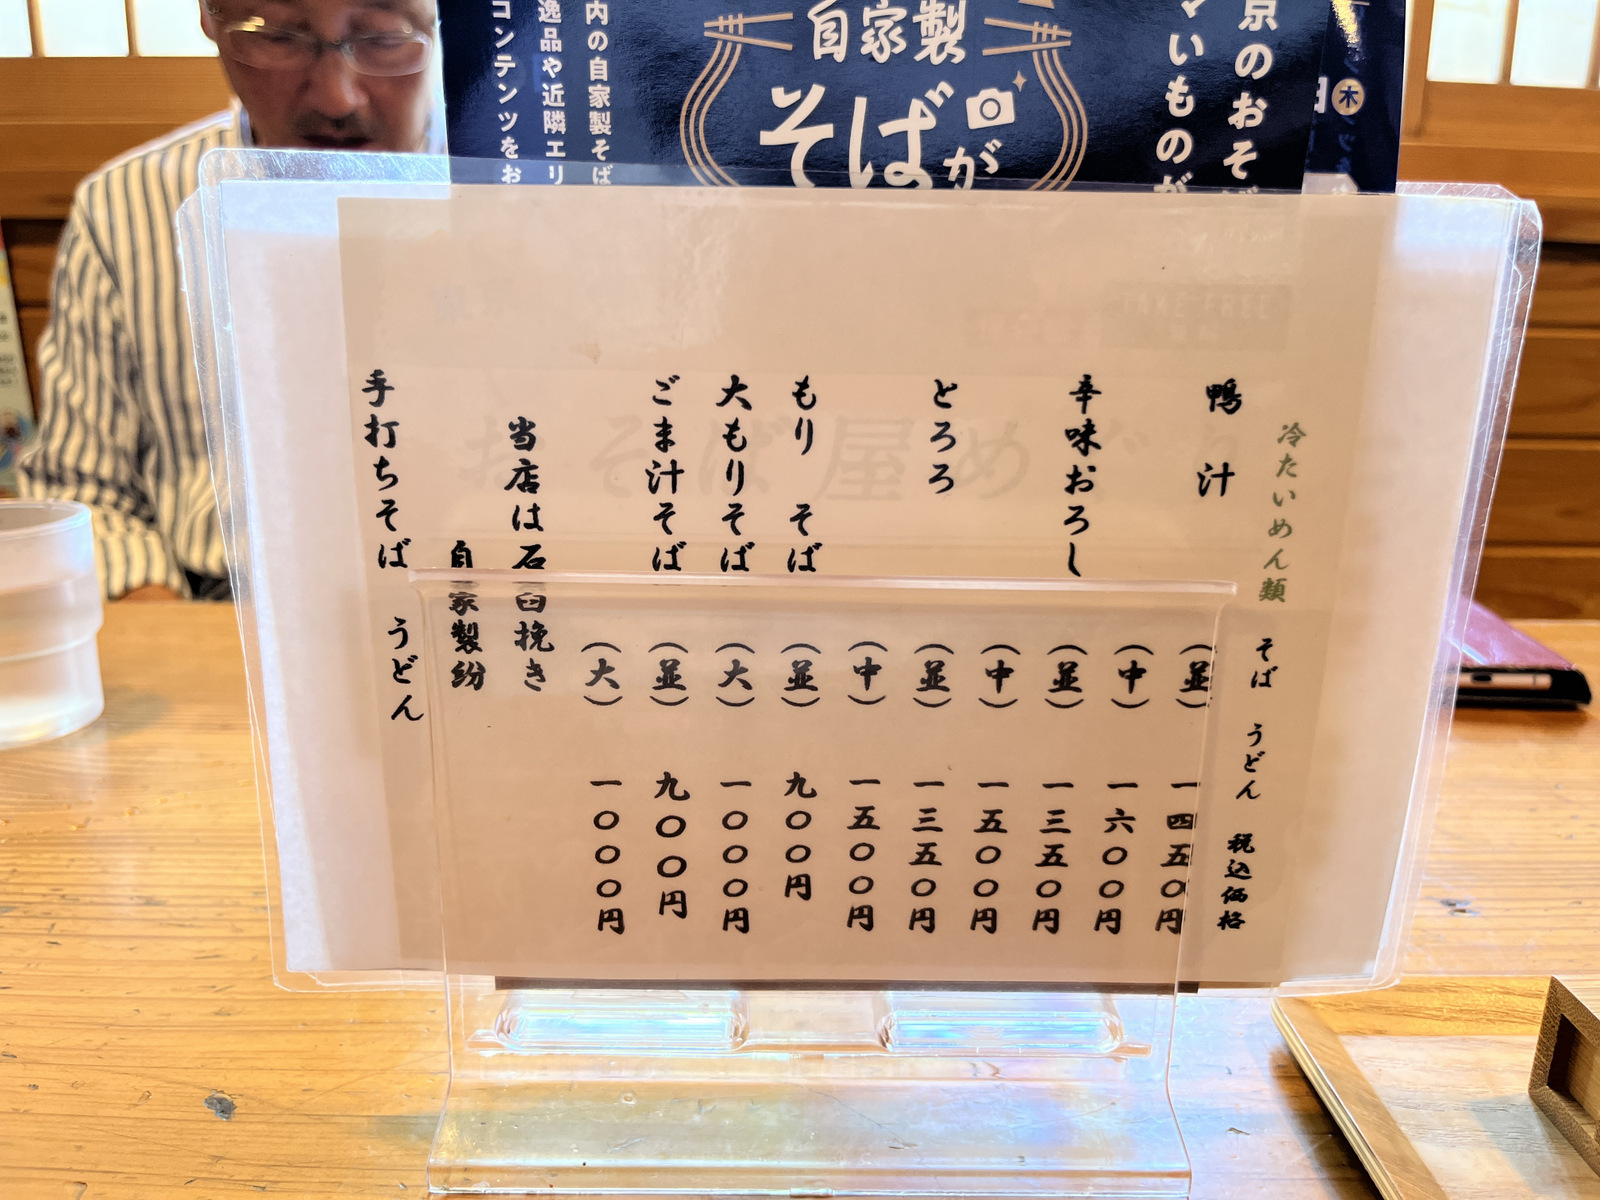 京のおそば
マいものが
自家製
そばが
内の自家製そば
逸品や近隣エリ
コンテンツをお
木
冷たいめん類 そば うどん 税込価格
鴨 汁 (並) 一四五〇円
(中) 一六〇〇円
辛味おろし (並) 一三五〇円
(中) 一五〇〇円
とろろ (並) 一三五〇円
(中) 一五〇〇円
もり そば (並) 九〇〇円
大もりそば (大) 一〇〇〇円
ごま汁そば (並) 九〇〇円
(大) 一〇〇〇円
当店は石臼挽き
自家製紛
手打ちそば うどん
おそば屋めぐり